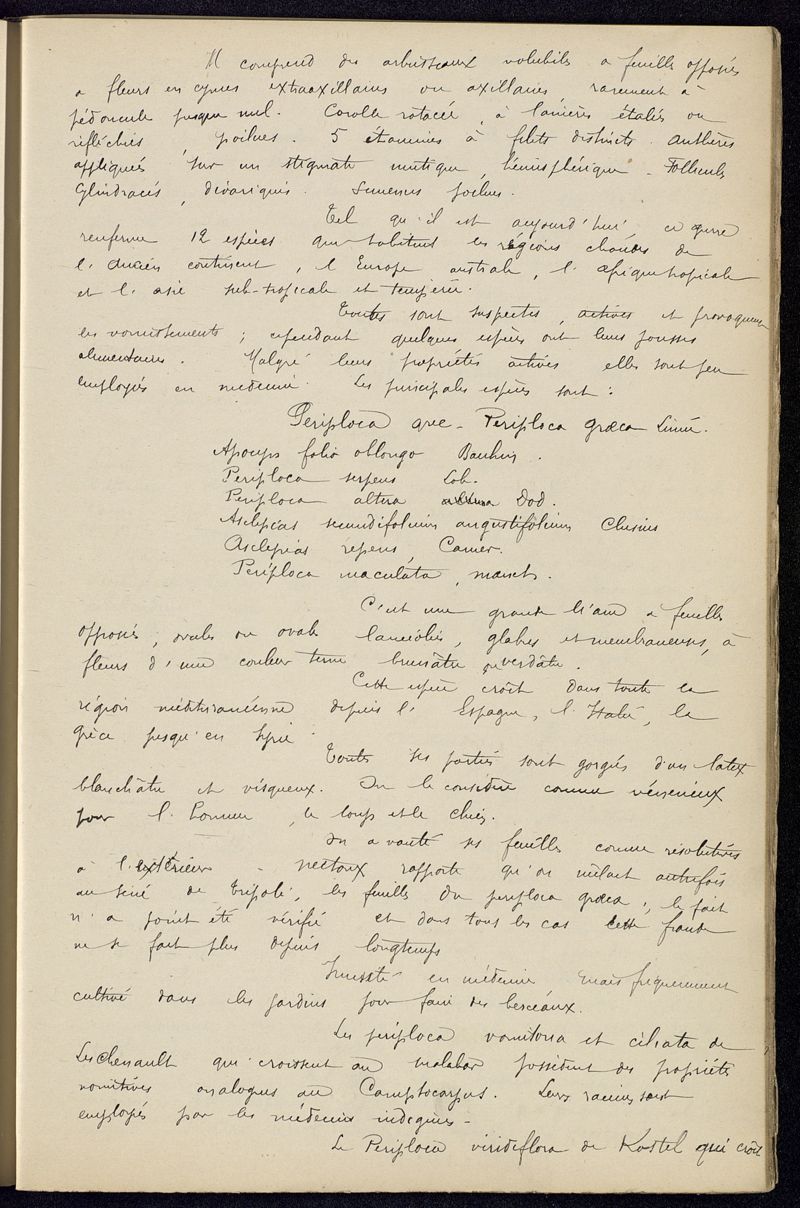 Il comprend des arbrisseaux volubiles a feuilles opposés
a fleurs en cymes extraaxillaires ou axillaires, rarement à
pédoncule presque nul. Corolle rotacée, à lanières étalés ou
réfléchies, poilues. 5 étamines à filets distincts. Anthères
appliqués sur un stigmate mutique, hémisphérique - Follicules
Cylindracés, dévariqués. Semences poilues.
Tel qu'il est aujourd'hui, ce genre
renferme 12 espèces qui habitent les régions chaudes de
l'Ancien continent, l'Europe australe, l'Afrique tropicale
et l'asie sub-tropicale et tempérée.
Toutes sont suspectes, actives et provoquent
les vomissements ; cependant quelques espèces ont leurs pousses
alimentaires. Malgré leurs propriétés actives elles sont peu
employés en médecine. Les principales espèces sont :
Periploca grec - Periploca græca Linné.
Apocyn folio oblongo Bauhin.
Periploca serpens Lob.
Periploca altera Dod.
Asclepias secundifolium angustifolium Clusius
Asclepias repens, Camer.
Periploca maculata, mœnch.
C'est une grande liane a feuilles
opposés, ovales ou ovale lancéolées, glabres et membraneuses, à
fleurs d'une couleur terne brunâtre ou verdâtre.
Cette espèce croît dans toute la
région méditerranéenne depuis l'Espagne, l'Italie, la
Grèce jusqu'en Syrie
Toutes ses parties sont gorgés d'un latex
blanchâtre et visqueux. On le considère comme vénéneux
pour l'homme, le loup et le chien.
On a vanté ses feuilles comme résolutives
à l'extérieur - nectoux rapporte qu'on mêlait autrefois
au séné de Tripoli, les feuilles du periploca græca ; le fait
n'a point été vérifié et dans tous les cas cette fraude
ne se fait plus depuis longtemps
Inusité en médecine mais fréquemment
cultivé dans les jardins pour faire des berceaux.
Les periploca vomitoria et ciliata de
Leschenault qui croissent au malabar possèdent des propriétés
vomitives analogues au Camptocarpus. Leurs racines sont
employés par les médecins indigènes -
Le Periploca viridiflora de Kostel qui croît